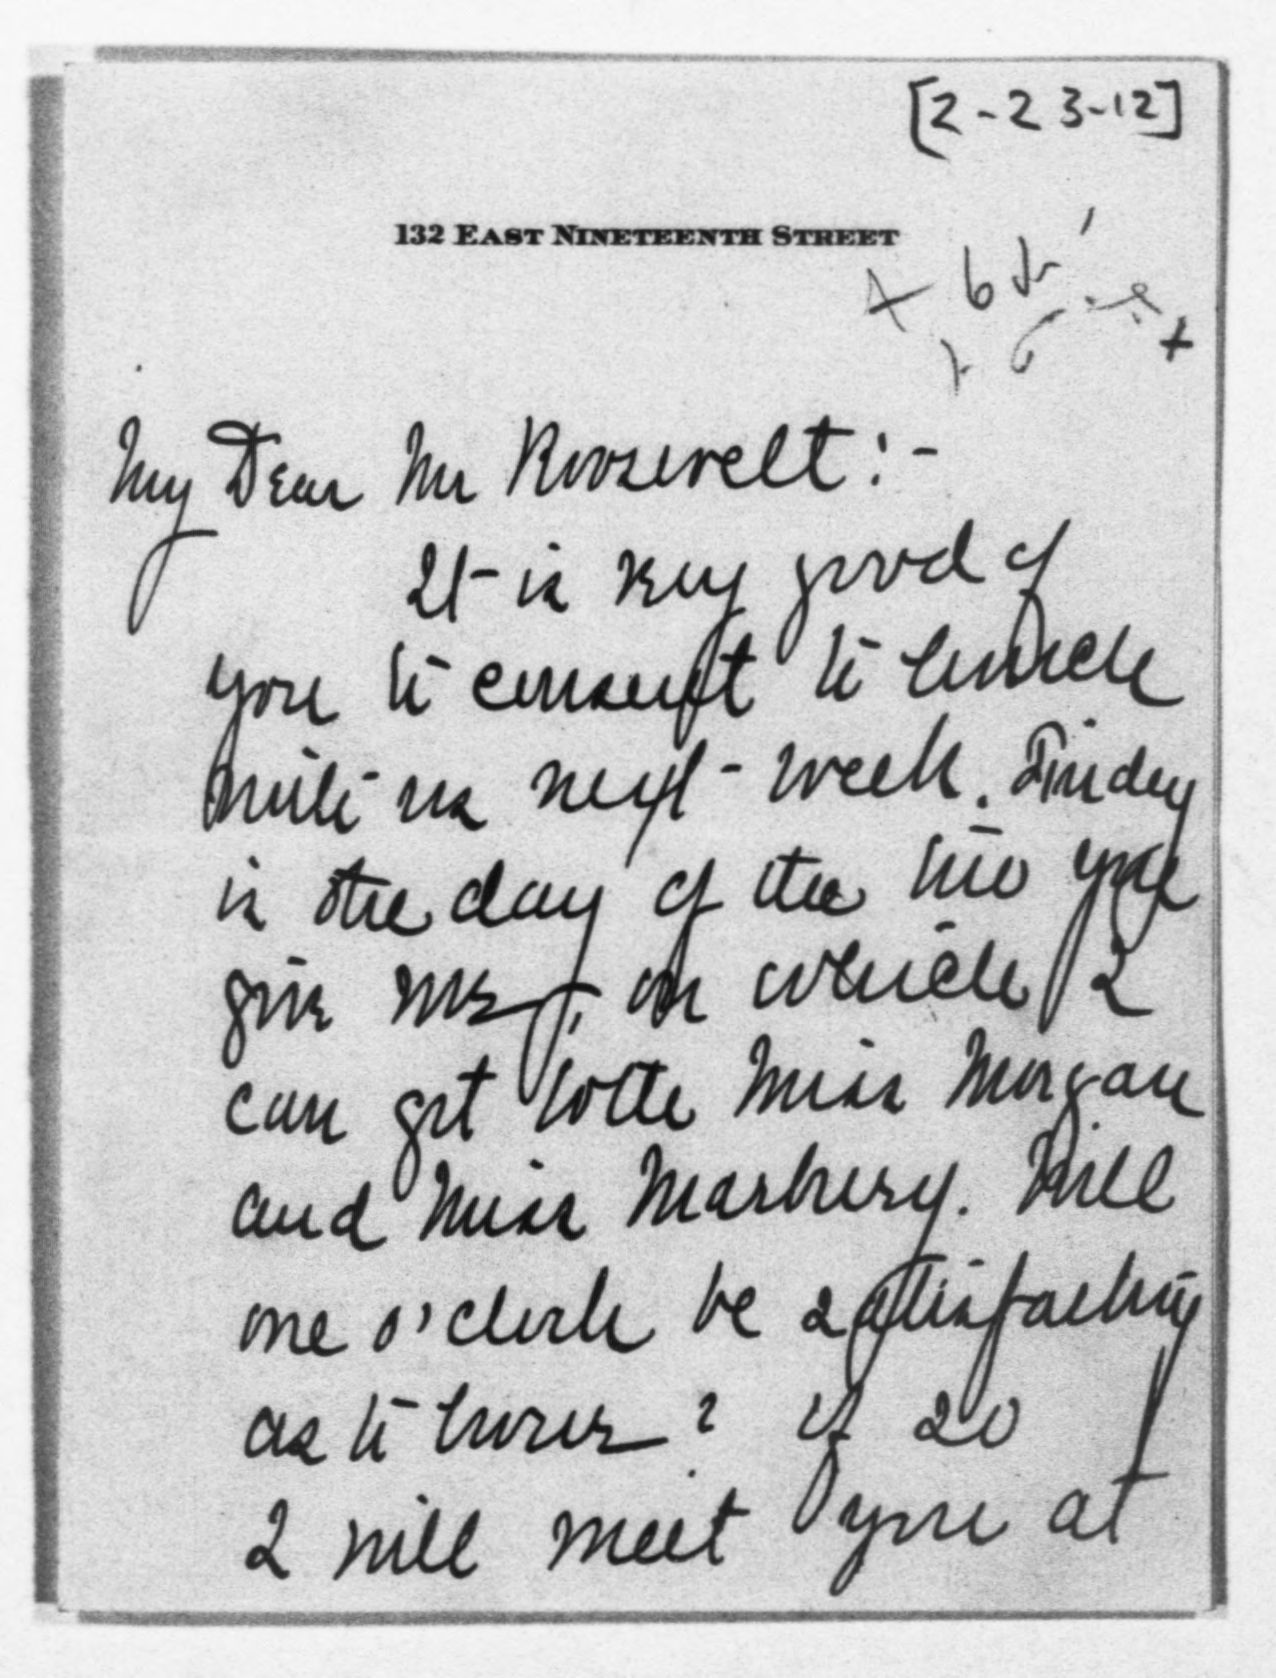 [2-23-12]
132 EAST NINETEENTH STREET
My Dear Mr Roosevelt:-
It is very good of
you to consent to lunch
with us next week. Friday
is the day of the two you
give me, on which I
can get both Miss Morgan
and Miss Marbury. Will
one o'clock be satisfactory
as to hour? If so
I will meet you at